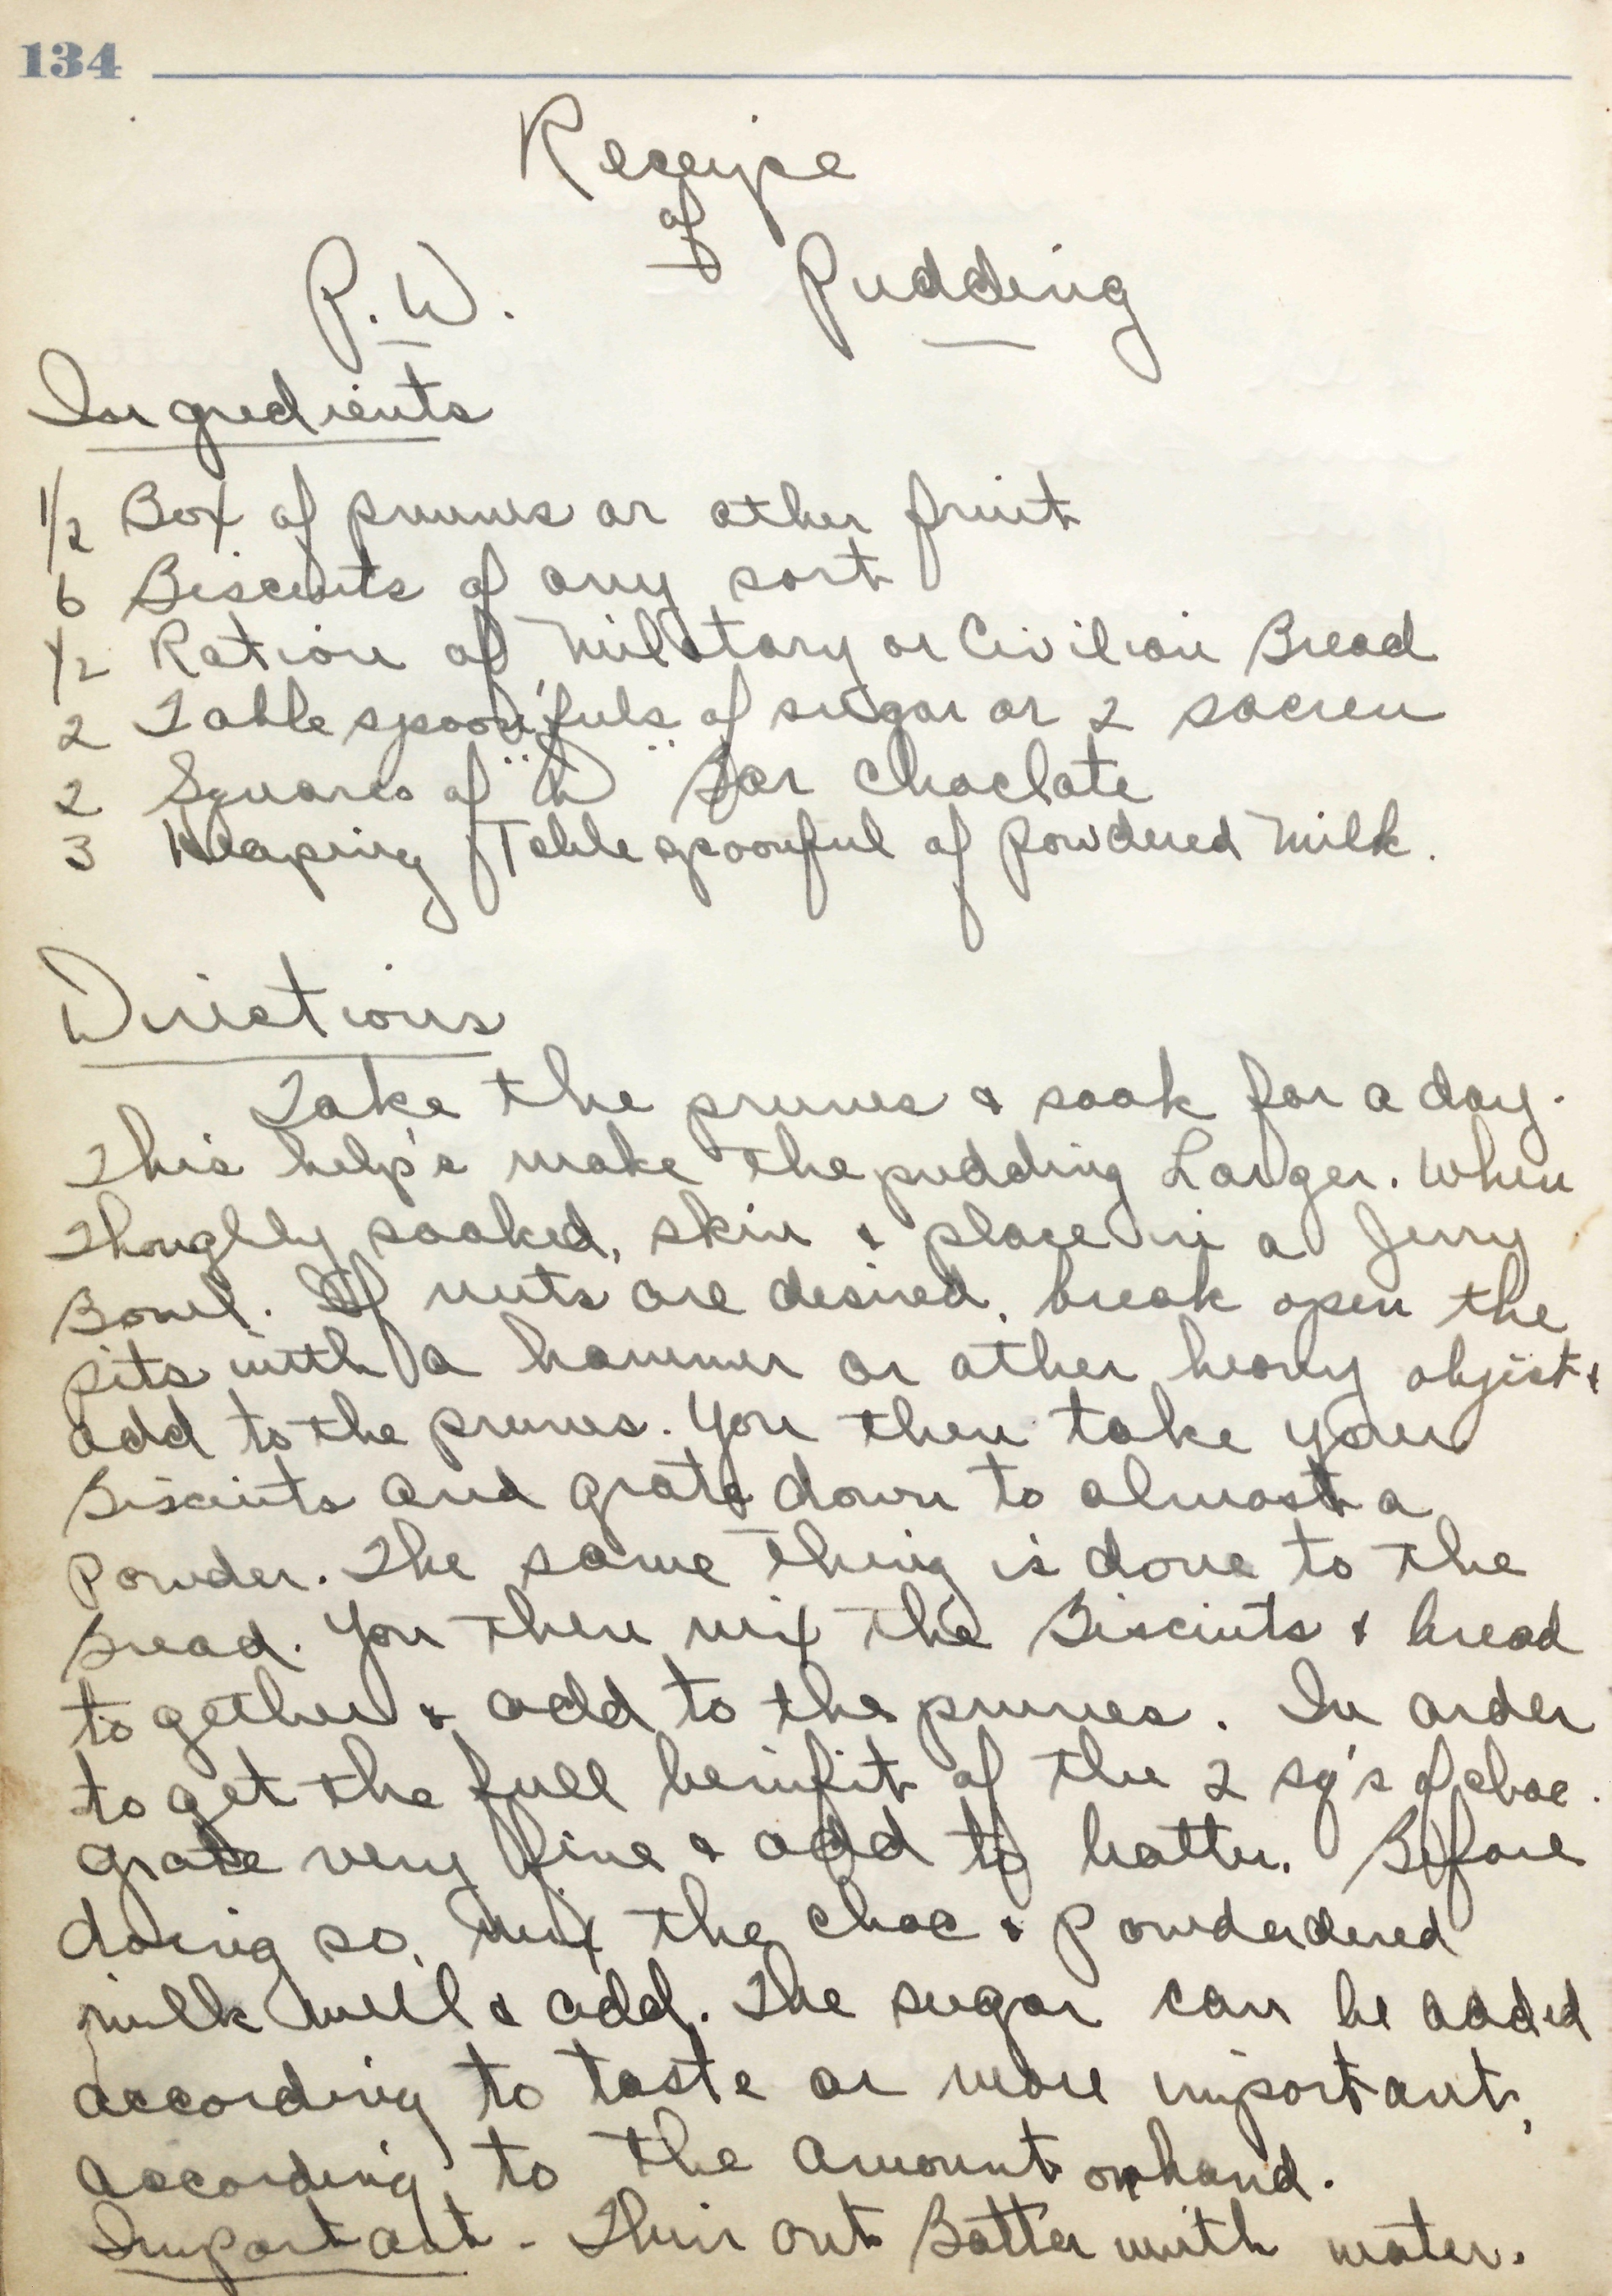 134
Receipe
of
P.W. Pudding
Ingredients
1/2 Box of prunes or other fruit
6 Biscuits of any sort
1/2 Ration of Military or Civilian Bread
2 Tablespoonfuls of sugar or 2 sacren
2 Squares of "D" Bar Choclate
3 Heaping Tablespoonful of Powdered Milk.
Directions
Take the prunes & soak for a day.
This help's make the pudding Larger. When
Thouglly soaked, skin & place in a Jerry
Bowl. If nuts are desired, break open the
pits with a hammer or other heavy object &
add to the prunes. You then take your
Biscuits and grate down to almost a
Powder. The same thing is done to the
Bread. You then mix the Biscuits & bread
together & add to the prunes. In order
to get the full benifit of the 2 sq's of choc.
grate very fine & add to batter. Before
doing so, mix the choc & Powderdered
milk well & add. The sugar can be added
according to taste or more important,
according to the amount on hand.
Important - Thin out Batter with water.